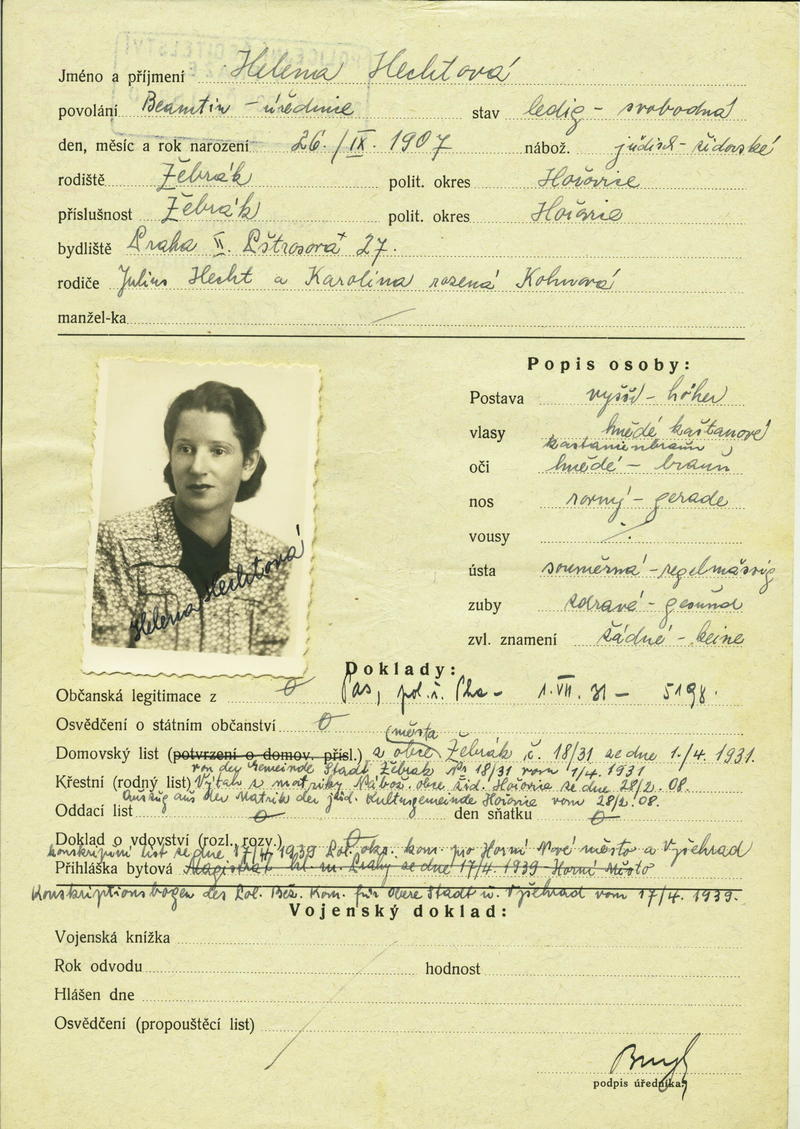 Jméno a příjmení Helena Hechtová
povolání Beamtin - úřednice stav ledig - svobodná
den, měsíc a rok narození 26./IX. 1907 nábož. jüdisch - židovské
rodiště Žebrák polit. okres Hořovice
příslušnost Žebrák polit. okres Hořovice
bydliště Praha II. Pštrosová 27.
rodiče Julius Hecht a Karolina rozená Kohnová
manžel-ka
Popis osoby:
Postava vyšší - höher
vlasy hnědé kaštanové
kastanienbraun
oči hnědé - braun
nos rovný - gerade
vousy
ústa souměrná - regelmässig
zuby zdravé - gesund
zvl. znamení žádné - keine
Helena Hechtová
Doklady:
Občanská legitimace z 0 Pas, pol. ř. Pha - 1.VII.31 - 5198.
Osvědčení o státním občanství 0
(města
Domovský list (potvrzení o domov. přísl.) z obce Žebrák č. 18/31 ze dne 1./4. 1931.
von der Gemeinde Stadt Žebrák No 18/31 vom 1/4. 1931
Křestní (rodný list) Výtah z matriky Nábož. obce žid. Hořovice ze dne 28/2. 08.
Auszug aus der Matrik der jüd. Kultusgemeinde Hořovice vom 28/2. 08.
Oddací list 0 den sňatku 0
Doklad o vdovství (rozl., rozv.) 0
Konskripční list ze dne 17/4. 1939 Pol. okr. kom. pro Horní Nové město a Vyšehrad
Přihláška bytová Magistrát hl. m. Prahy ze dne 17/4. 1939 Horní Město
Konskriptionsbogen des Pol. Bez. Kom. für Obere Stadt u. Vyšehrad vom 17/4. 1939.
Vojenský doklad:
Vojenská knížka
Rok odvodu hodnost
Hlášen dne
Osvědčení (propouštěcí list)
podpis úředníka: